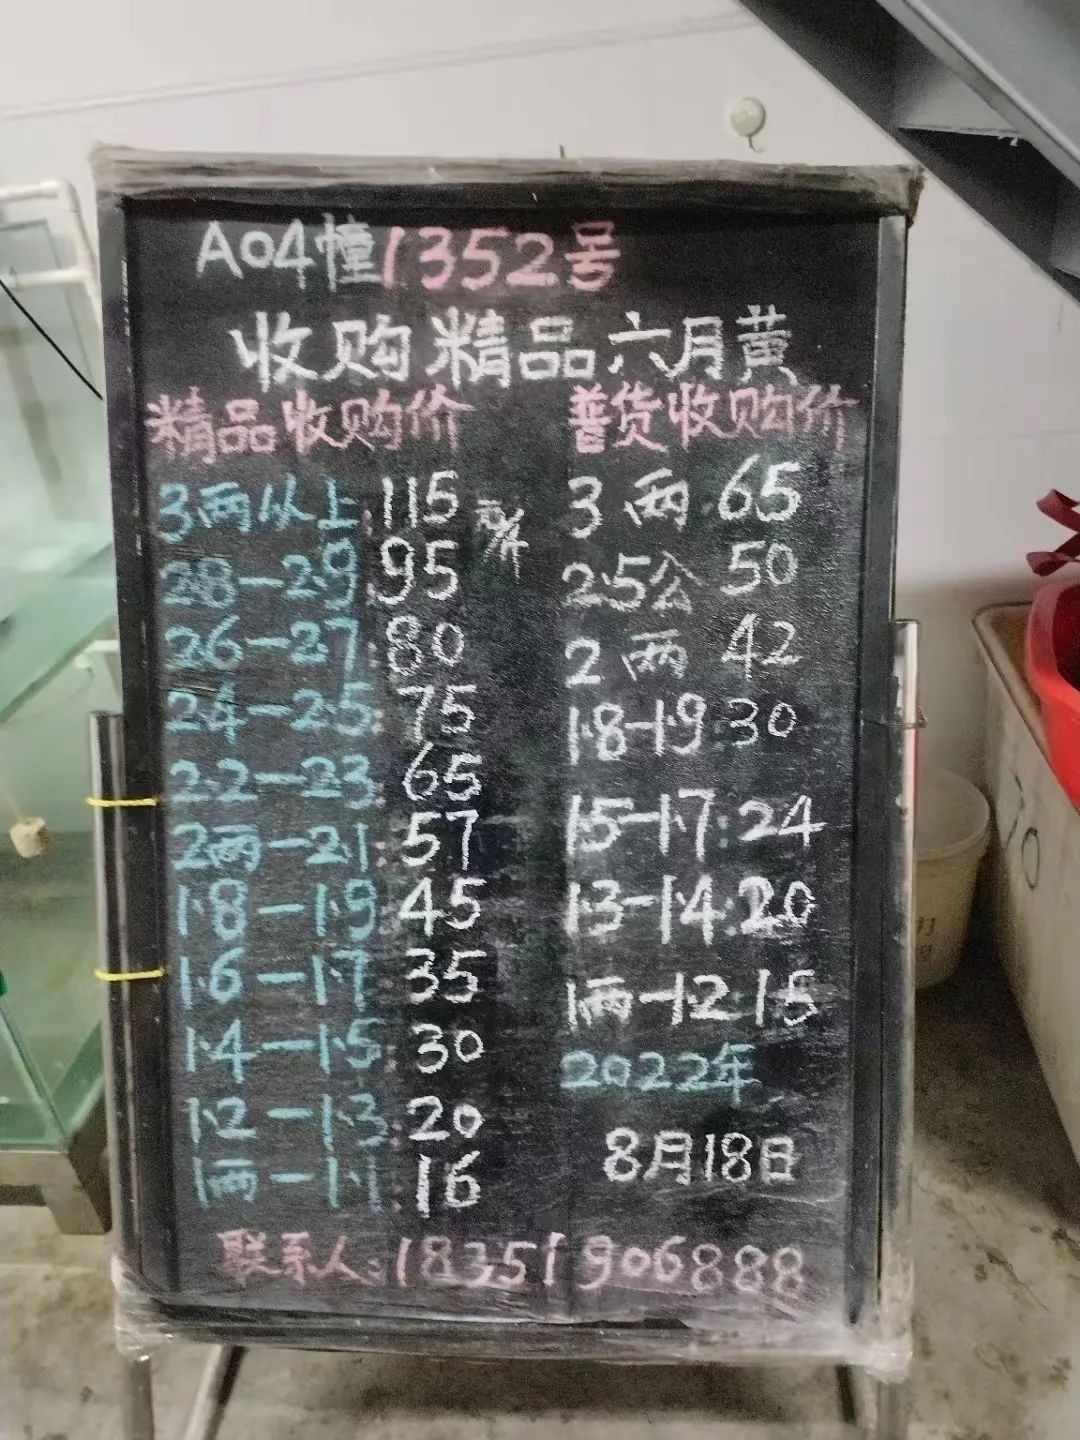 A04幢1352号
收购精品六月黄
精品收购价
3两以上:115元/斤
2.8-2.9:95
2.6-2.7:80
2.4-2.5:75
2.2-2.3:65
2两-2.1:57
1.8-1.9:45
1.6-1.7:35
1.4-1.5:30
1.2-1.3:20
1两-1.1:16
普货收购价
3两:65
2.5公 50
2两 42
1.8-1.9:30
1.5-1.7:24
1.3-1.4:20
1两-1.2:15
2022年
8月18日
联系人:18351906888